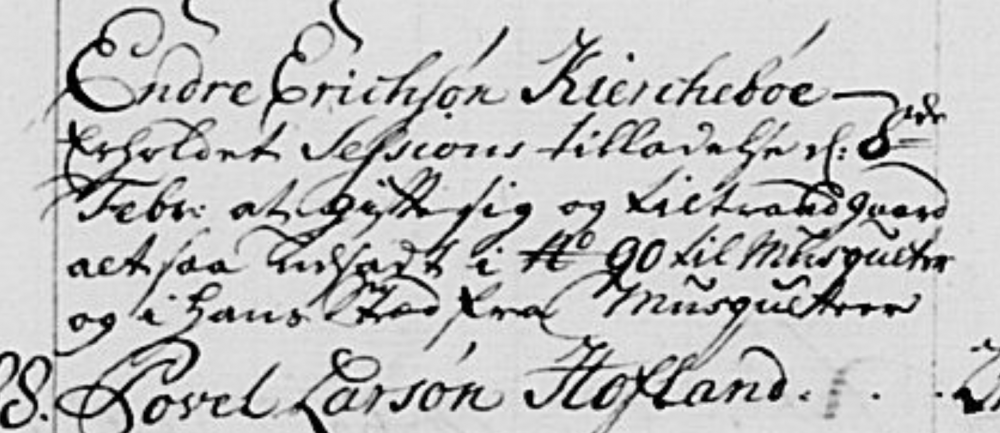 Endre Erichsøn Kiercheboe —
Erholdet Sessions tilladelse d: 8de
Febr: at gifte sig og tiltræde gaard
alt saa udsadt i No 90 til Musqueter
og i hans Stæd fra Musqueterer
8. Povel Larsøn Hofland. . .